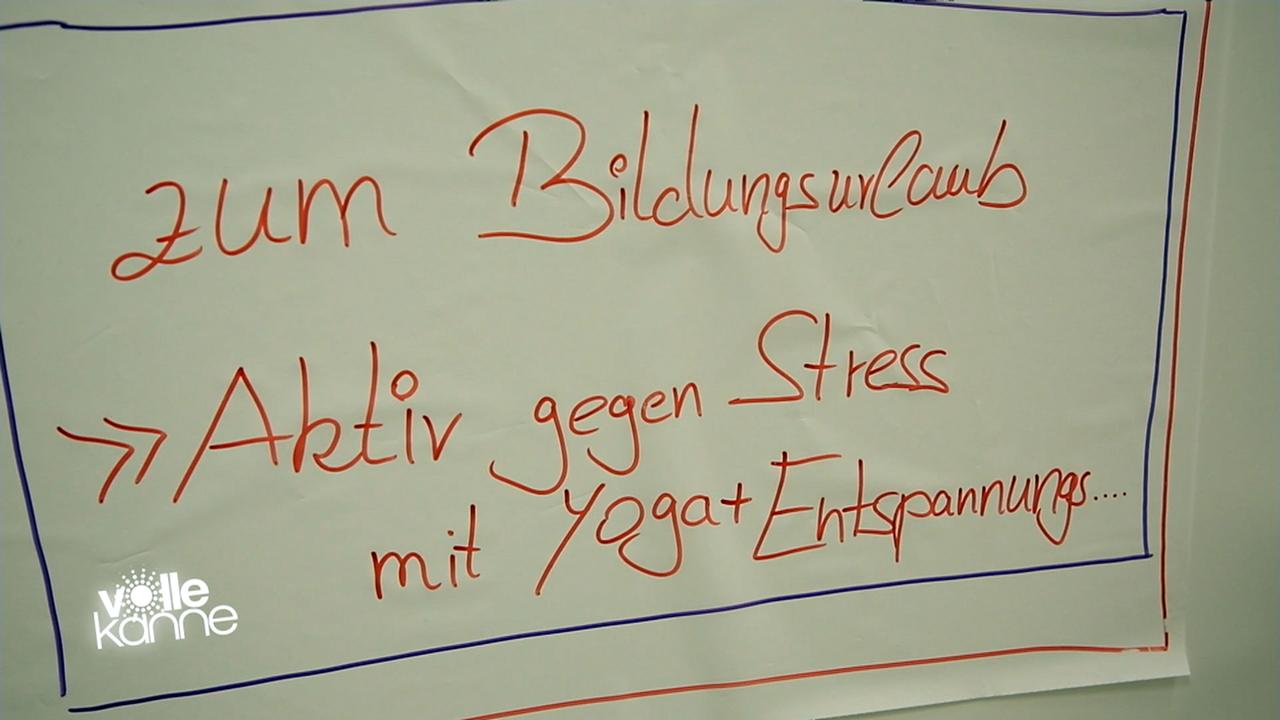 zum Bildungsurlaub
>> Aktiv gegen Stress
mit Yoga + Entspannungs....
volle
kanne